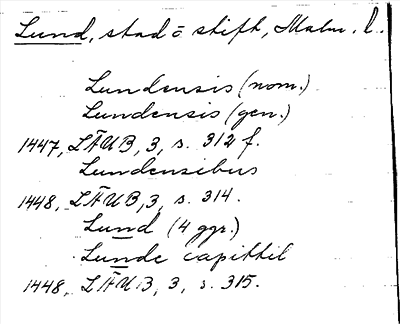 Lund, stad o stift, Malm. l.
Lundensis (nom.)
Lundensis (gen.)
1447, LÄUB, 3, s. 312 f.
Lundensibus
1448, LÄUB, 3, s. 314.
Lund (4 ggr.)
Lunde capittil
1448, LÄUB, 3, s. 315.